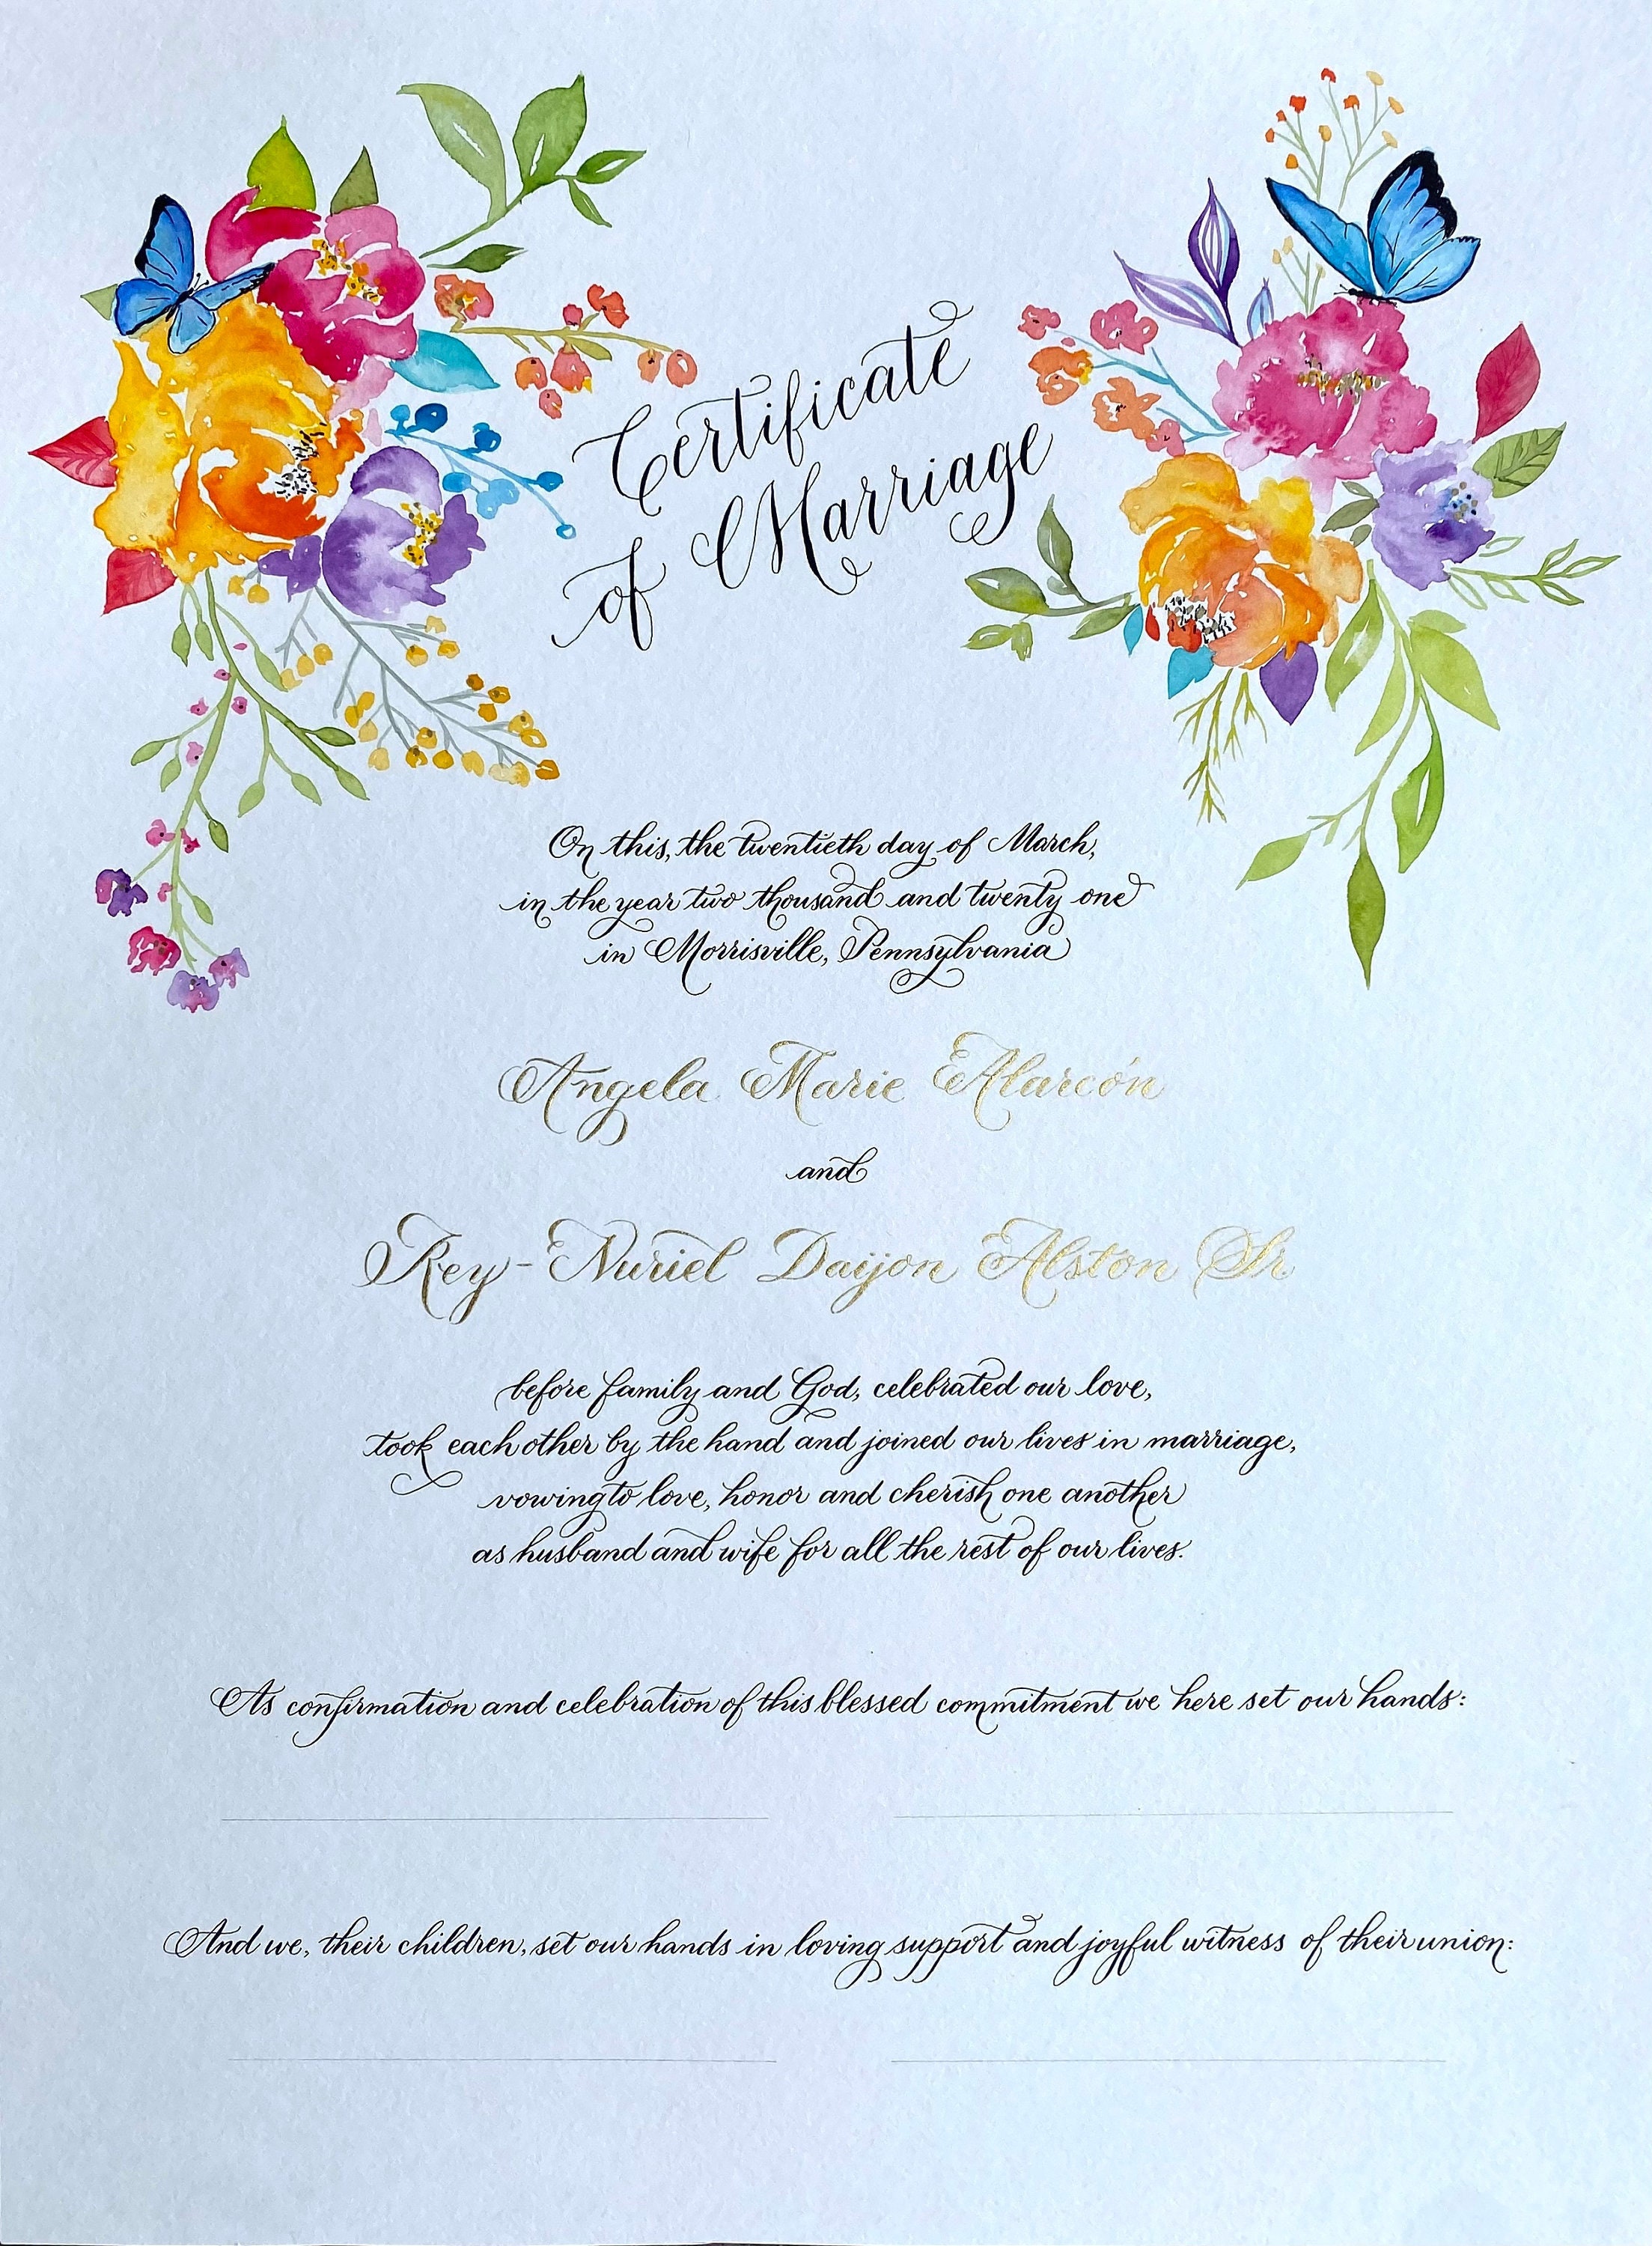 Certificate
of Marriage
On this, the twentieth day of March,
in the year two thousand and twenty one
in Morrisville, Pennsylvania
Angela Marie Alarcón
and
Rey-Nuriel Daijon Alston Sr
before family and God, celebrated our love,
took each other by the hand and joined our lives in marriage,
vowing to love, honor and cherish one another
as husband and wife for all the rest of our lives.
As confirmation and celebration of this blessed commitment we here set our hands:
And we, their children, set our hands in loving support and joyful witness of their union: